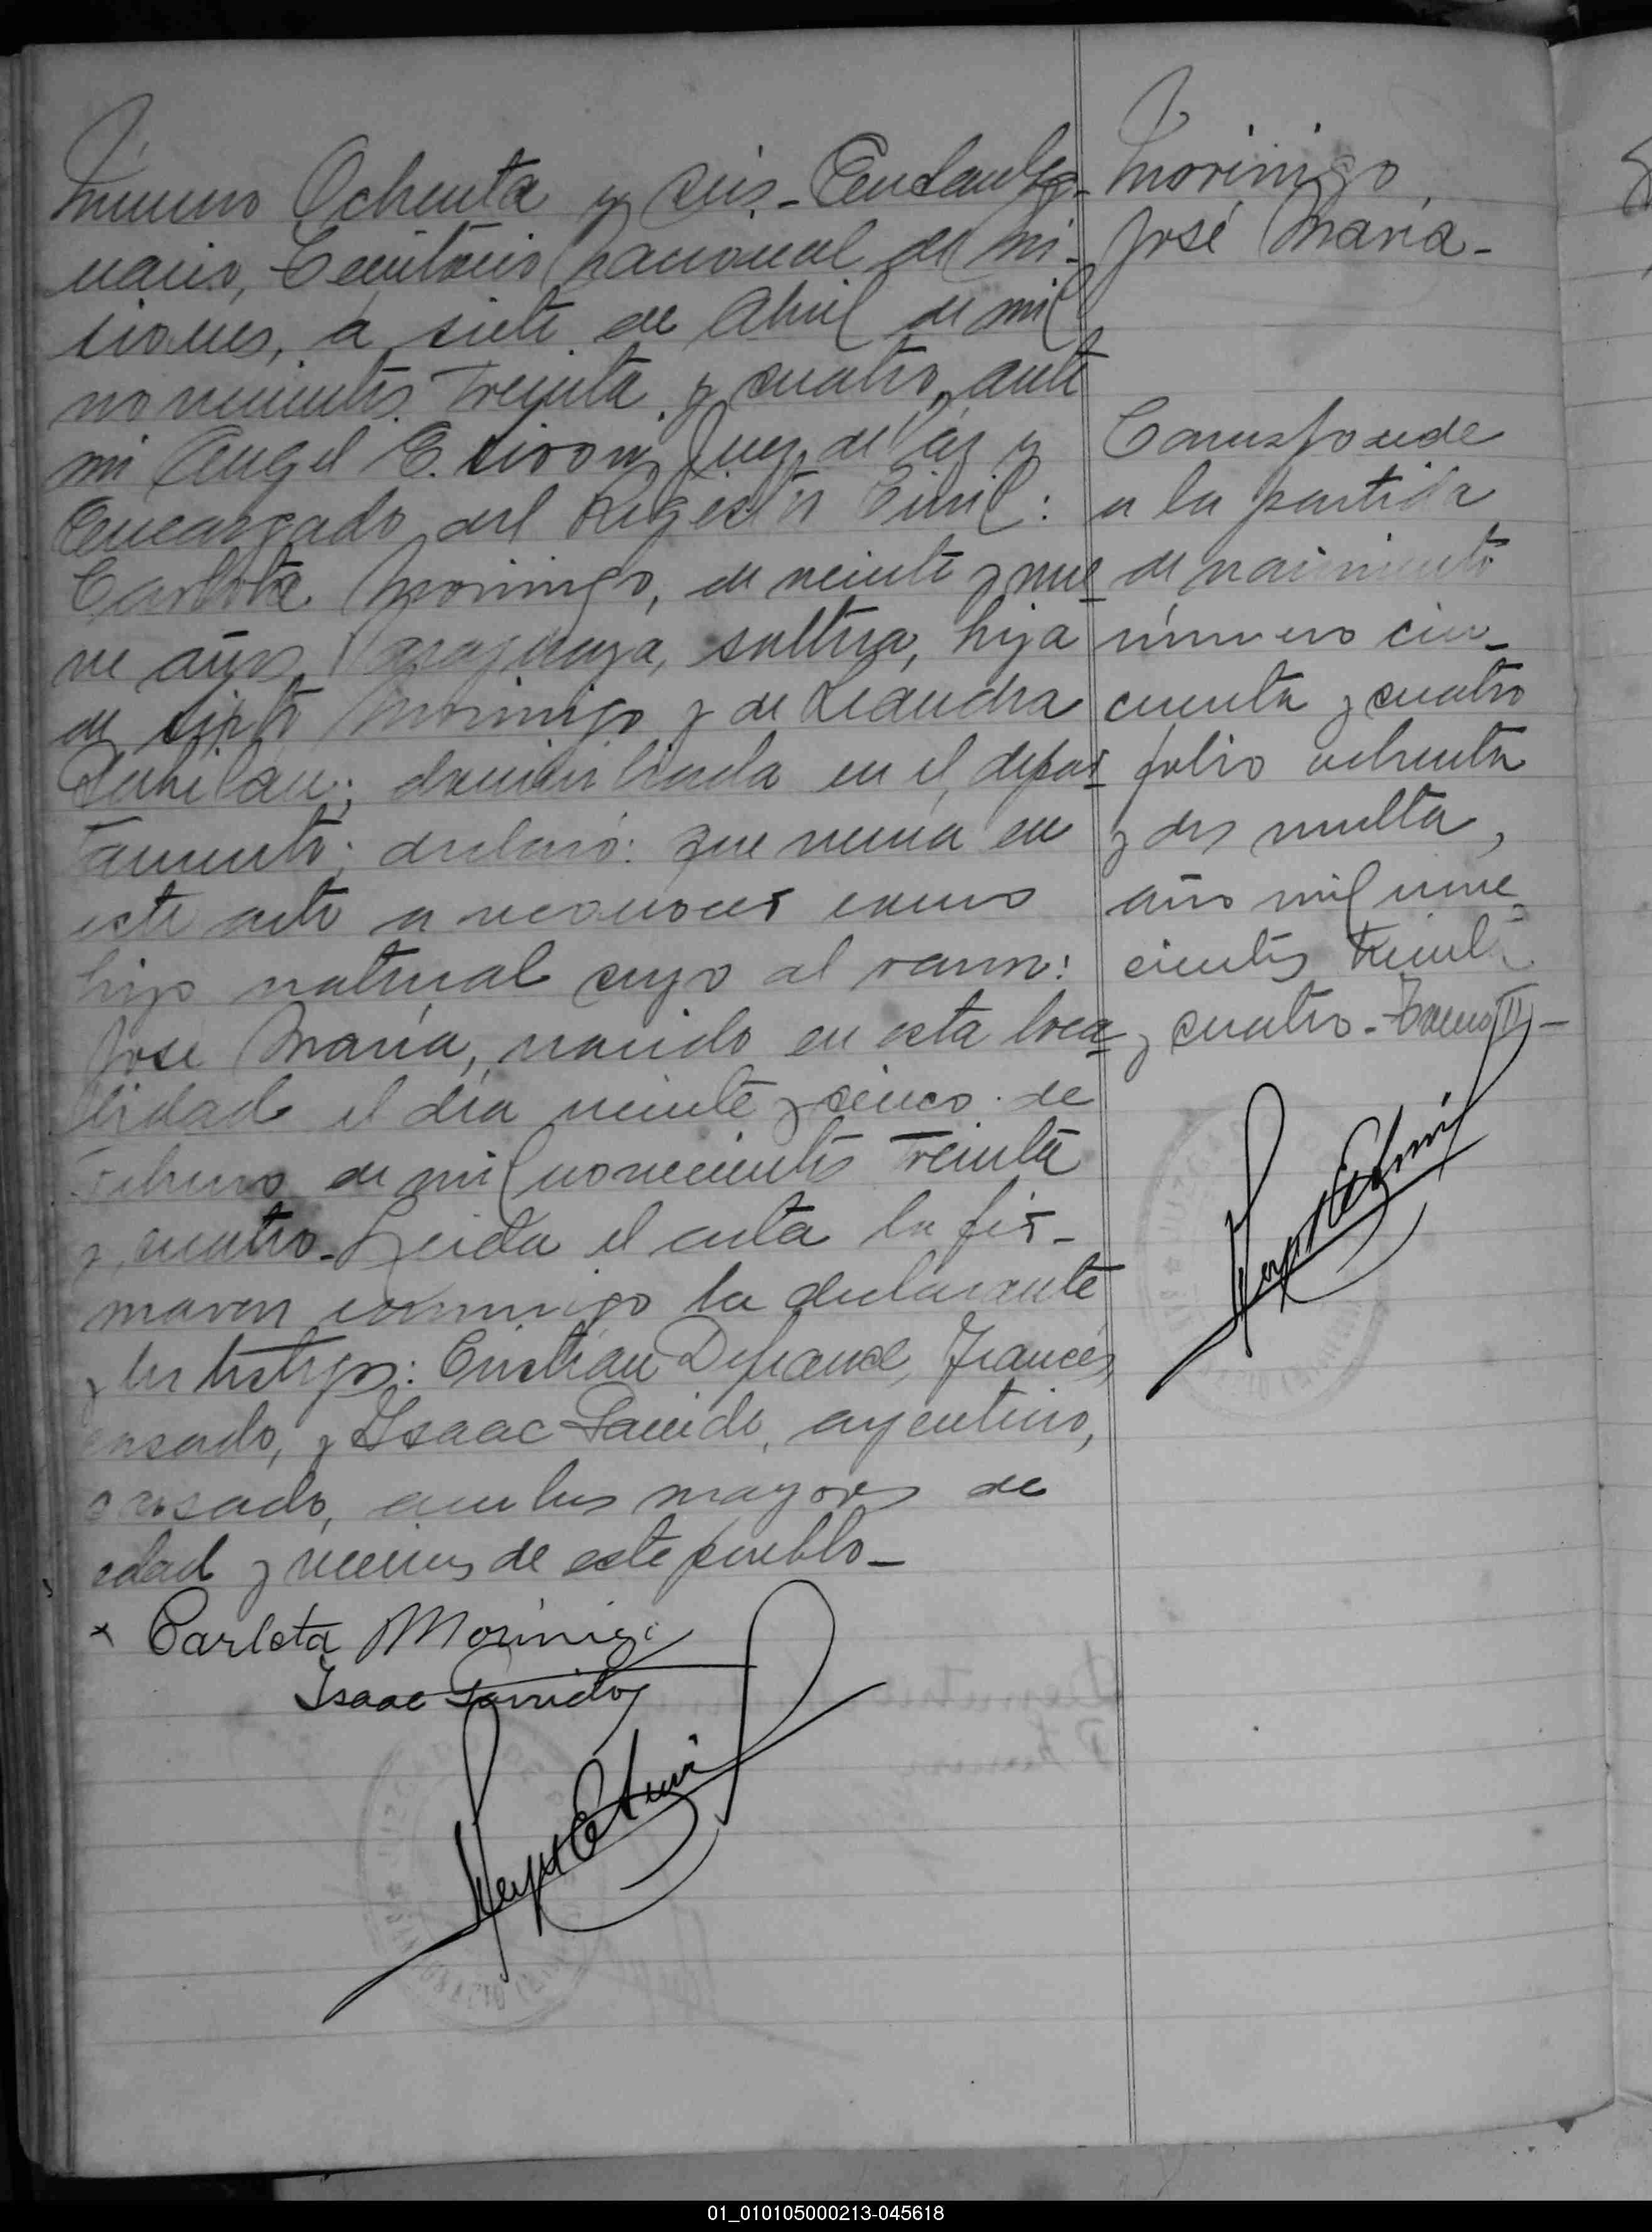 Número Ochenta y seis - En Santa A-
naris, Territorio Nacional de Mi-
siones, a siete de Abril de mil
novecientos treinta y cuatro, ante
mi Angel E. Juez de Paz y
Encargado del Registro Civil:
Carlota Morinigo, de veinte y nue
ve años Paraguaya, soltera, hija
de Sixto Morinigo y de Leandra
domiciliada en el depar
tamento; declaró: que venia en
este acto a reconocer como
hijo natural suyo al varon:
José María, nacido en esta loca
lidad el día veinte y cinco de
Febrero de mil novecientos treinta
y cuatro - Leida el acta la fir-
maron conmigo la declarante
y los testigos: Cristian Defrance, Francés,
casado, y Isaac Garrido, argentino,
casado, ambos mayores de
edad y vecinos de este pueblo -
x Carlota Morinigo
Isaac Garrido
Morinigo
José María -
Corresponde
a la partida
de nacimiento
número cin-
cuenta y cuatro
folio ochenta
y dos vuelta,
año mil nove
cientos treinta
y cuatro - Tomo II -
01_010105000213-045618